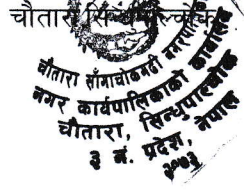 चौतारा सिन्धुपाल्चोक
चौतारा साँगाचोकगढी नगरपालिका
नगर कार्यपालिकाको कार्यालय
चौतारा, सिन्धुपाल्चोक
३ नं. प्रदेश, नेपाल
२०७३